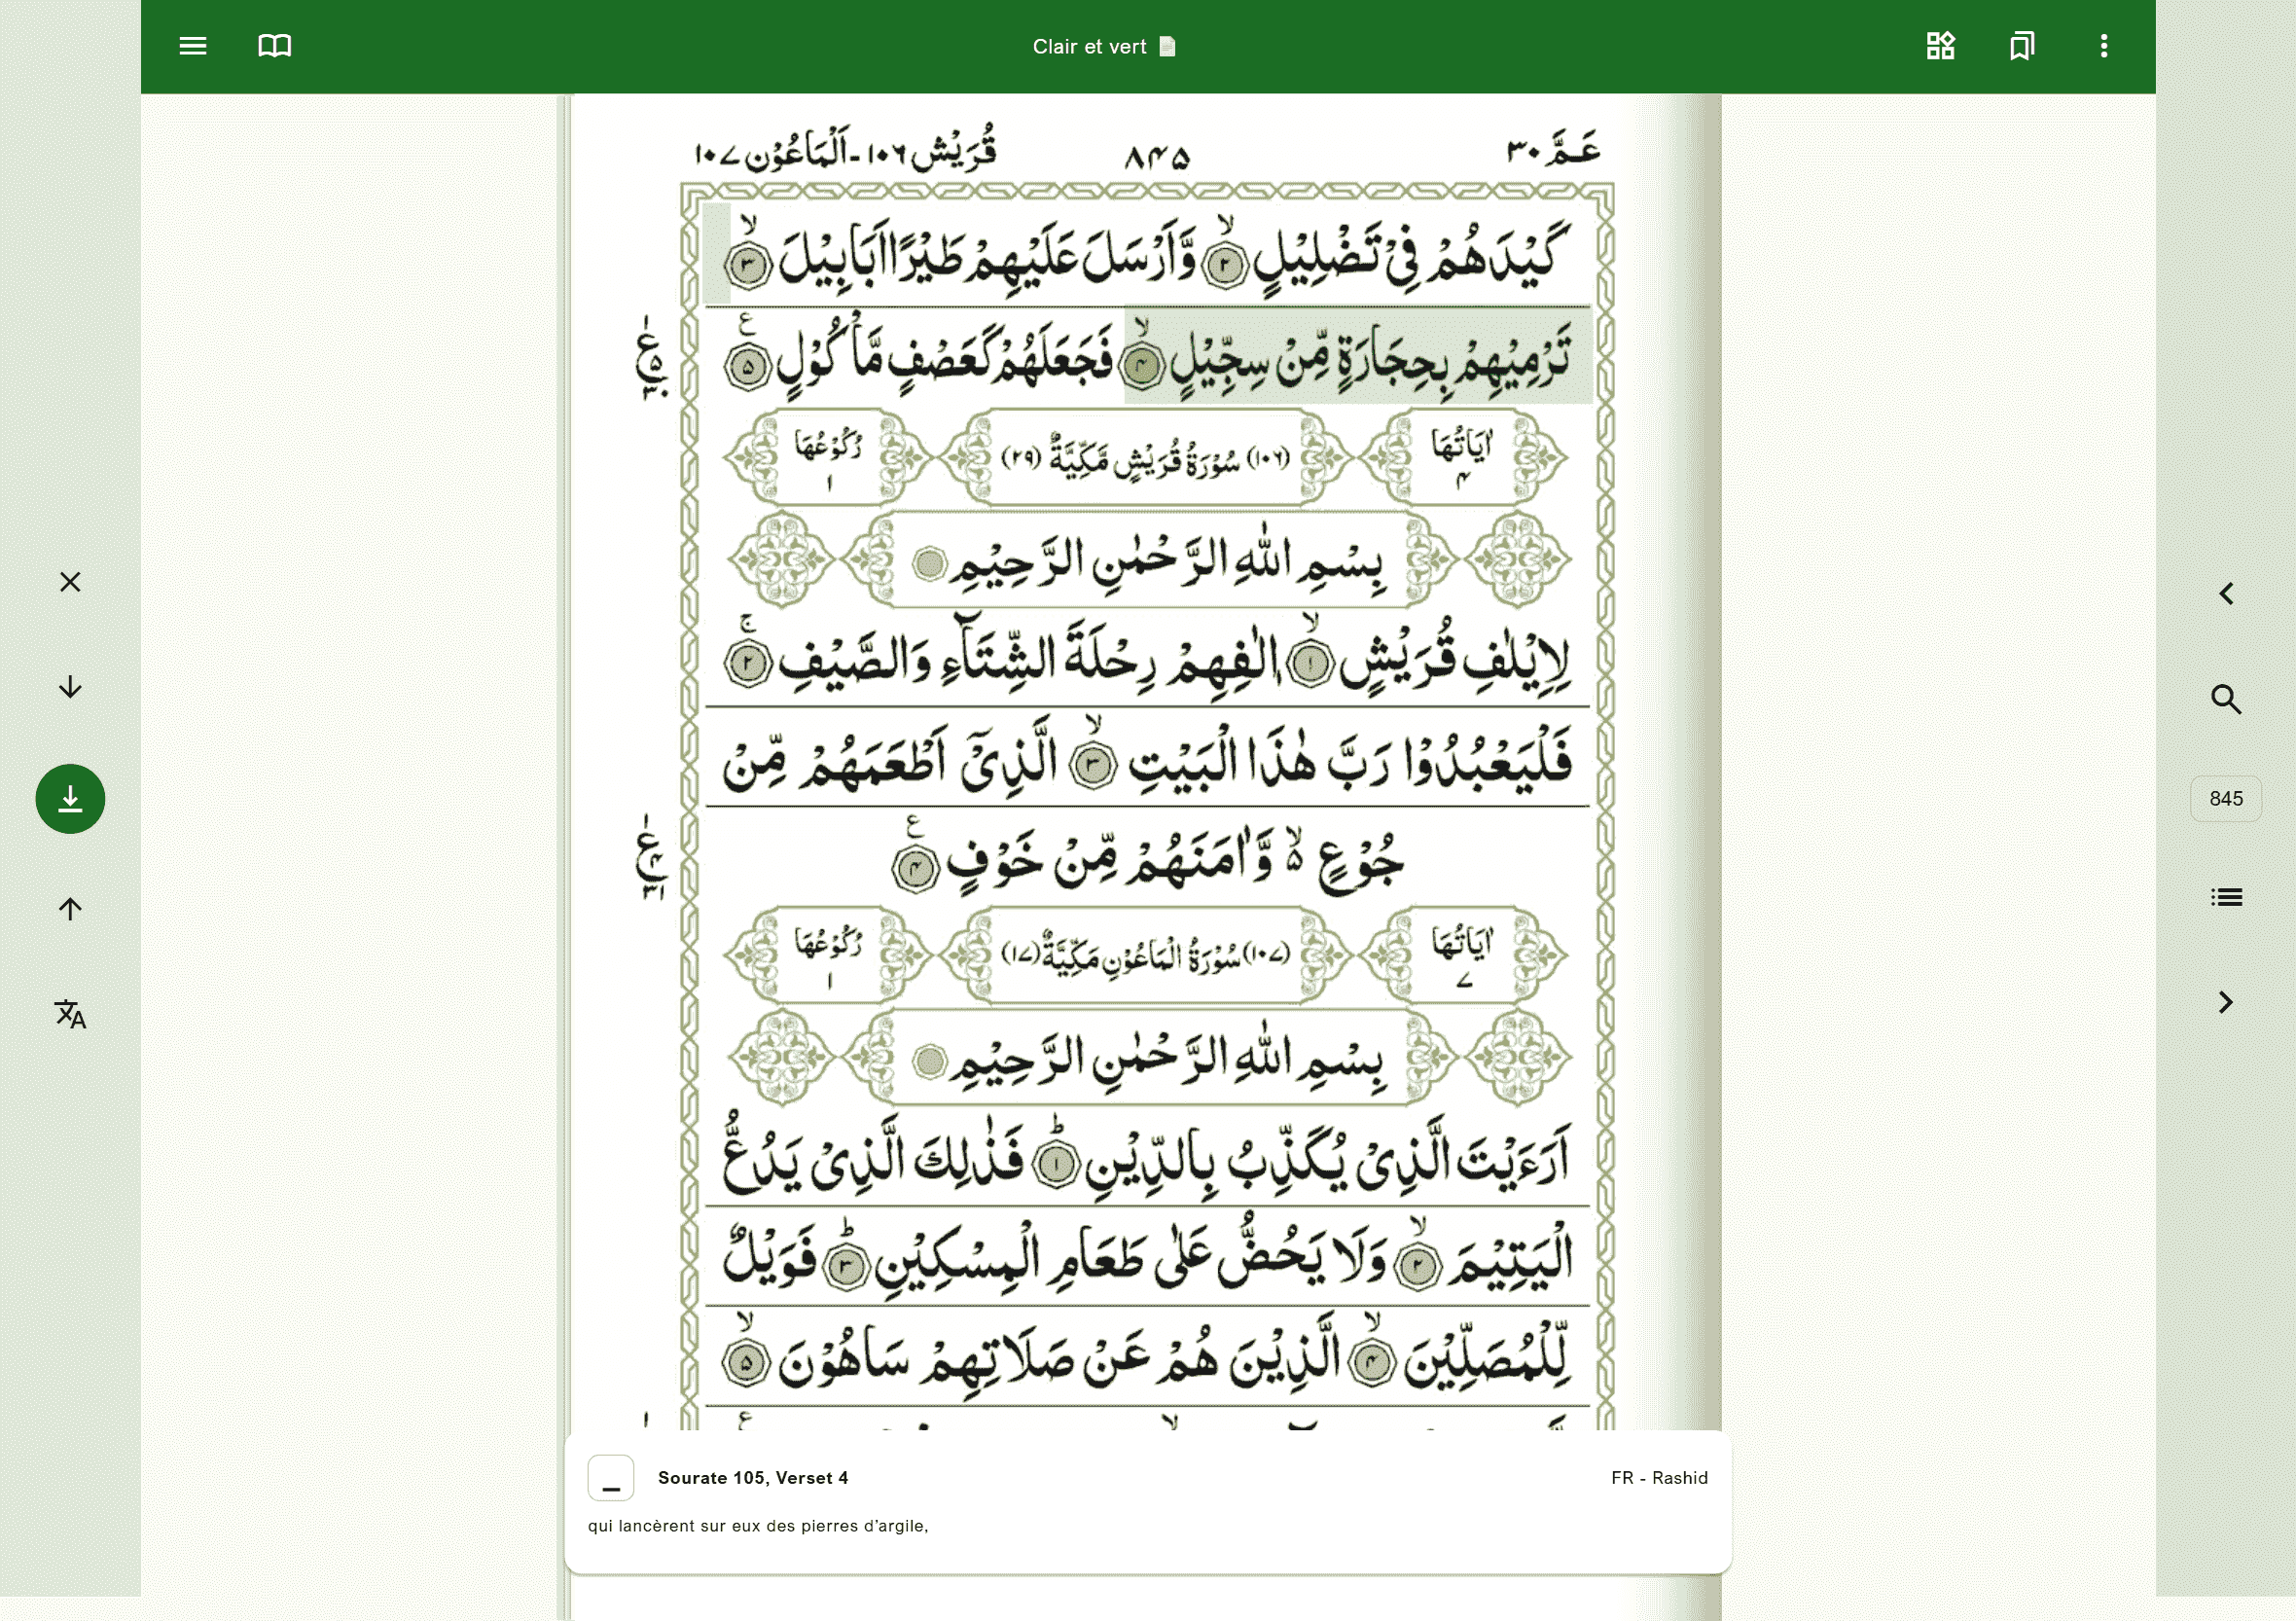 Clair et vert
قُرَيْش ١٠٦ - اَلْمَاعُوْن ١٠٧
۸۴۵
عَمَّ ٣٠
كَيْدَهُمْ فِيْ تَضْلِيْلٍ ۙ﴿۲﴾ وَّاَرْسَلَ عَلَيْهِمْ طَيْرًا اَبَابِيْلَ ۙ﴿۳﴾
تَرْمِيْهِمْ بِحِجَارَةٍ مِّنْ سِجِّيْلٍ ۙ﴿۴﴾ فَجَعَلَهُمْ كَعَصْفٍ مَّاْكُوْلٍ ﴿۵﴾ ع
اٰيَاتُهَا ۴
(١٠٦) سُوْرَةُ قُرَيْشٍ مَّكِّيَّةٌ (٢٩)
رُكُوْعُهَا ١
بِسْمِ اللّٰهِ الرَّحْمٰنِ الرَّحِيْمِ
لِاِيْلٰفِ قُرَيْشٍ ۙ﴿۱﴾ اٖلٰفِهِمْ رِحْلَةَ الشِّتَآءِ وَالصَّيْفِ ۚ﴿۲﴾
فَلْيَعْبُدُوْا رَبَّ هٰذَا الْبَيْتِ ۙ﴿۳﴾ الَّذِيْٓ اَطْعَمَهُمْ مِّنْ
جُوْعٍ ۵ۙ وَّاٰمَنَهُمْ مِّنْ خَوْفٍ ﴿۴﴾ ع
اٰيَاتُهَا ۷
(١٠٧) سُوْرَةُ الْمَاعُوْنِ مَكِّيَّةٌ (١٧)
رُكُوْعُهَا ١
بِسْمِ اللّٰهِ الرَّحْمٰنِ الرَّحِيْمِ
اَرَءَيْتَ الَّذِيْ يُكَذِّبُ بِالدِّيْنِ ؕ﴿۱﴾ فَذٰلِكَ الَّذِيْ يَدُعُّ
الْيَتِيْمَ ۙ﴿۲﴾ وَلَا يَحُضُّ عَلٰى طَعَامِ الْمِسْكِيْنِ ؕ﴿۳﴾ فَوَيْلٌ
لِّلْمُصَلِّيْنَ ۙ﴿۴﴾ الَّذِيْنَ هُمْ عَنْ صَلَاتِهِمْ سَاهُوْنَ ۙ﴿۵﴾
845
Sourate 105, Verset 4
FR - Rashid
qui lancèrent sur eux des pierres d’argile,